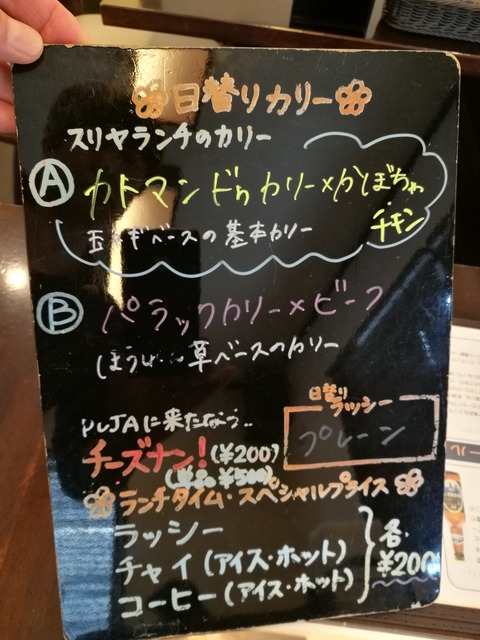 日替りカリー
スリヤランチのカリー
A カトマンドゥカリー×かぼちゃ
チキン
玉ネギベースの基本カリー
B パラックカリー×ビーフ
ほうれん草ベースのカリー
日替り
ラッシー
プレーン
PUJAに来たなら..
チーズナン!(¥200)
(単品¥500)
ランチタイム・スペシャルプライス
ラッシー
チャイ(アイス・ホット)
コーヒー(アイス・ホット)
各・
¥200